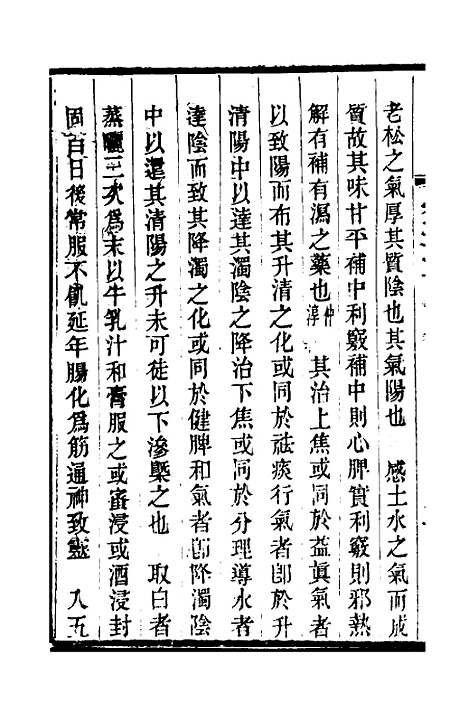 老松之氣厚其質陰也其氣陽也　感土水之氣而成
質故其味甘平補中利竅補中則心脾實利竅則邪熱
解有補有瀉之藥也仲淳　其治上焦或同於益眞氣者
以致陽而布其升清之化或同於祛痰行氣者卽於升
清陽中以達其濁陰之降治下焦或同於分理導水者
達陰而致其降濁之化或同於健脾和氣者卽降濁陰
中以還其清陽之升未可徒以下滲槩之也　取白者
蒸曬三次爲末以牛乳汁和膏服之或蜜浸或酒浸封
固百日後常服不飢延年腸化爲筋通神致靈　入五